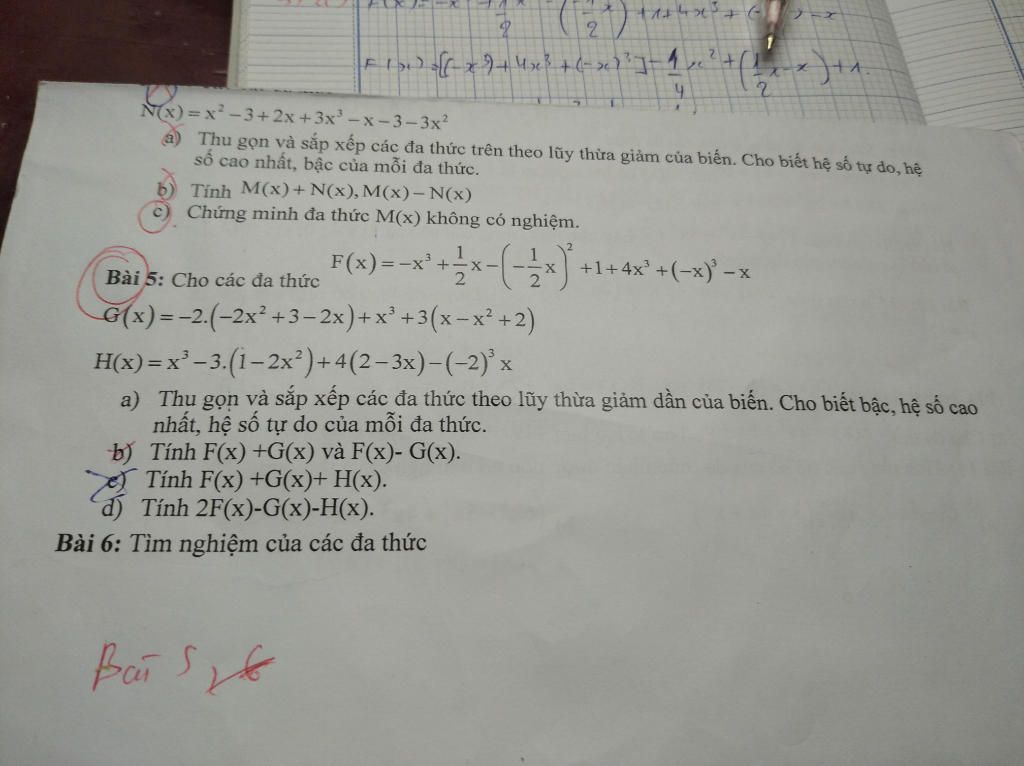 F(x) = -x³ + 1/2 x - (-1/2 x)² + 1 + 4x³ + (-x)³ - x
F(x) = [(-x³) + 4x³ + (-x)³] - 1/4 x² + (1/2 x - x) + 1.
N(x) = x² - 3 + 2x + 3x³ - x - 3 - 3x²
a) Thu gọn và sắp xếp các đa thức trên theo lũy thừa giảm của biến. Cho biết hệ số tự do, hệ
số cao nhất, bậc của mỗi đa thức.
b) Tính M(x) + N(x), M(x) - N(x)
c) Chứng minh đa thức M(x) không có nghiệm.
Bài 5: Cho các đa thức F(x) = -x³ + 1/2 x - (-1/2 x)² + 1 + 4x³ + (-x)³ - x
G(x) = -2.(-2x² + 3 - 2x) + x³ + 3(x - x² + 2)
H(x) = x³ - 3.(1 - 2x²) + 4(2 - 3x) - (-2)³ x
a) Thu gọn và sắp xếp các đa thức theo lũy thừa giảm dần của biến. Cho biết bậc, hệ số cao
nhất, hệ số tự do của mỗi đa thức.
b) Tính F(x) +G(x) và F(x)- G(x).
c) Tính F(x) +G(x)+ H(x).
d) Tính 2F(x)-G(x)-H(x).
Bài 6: Tìm nghiệm của các đa thức
Bài 5, 6